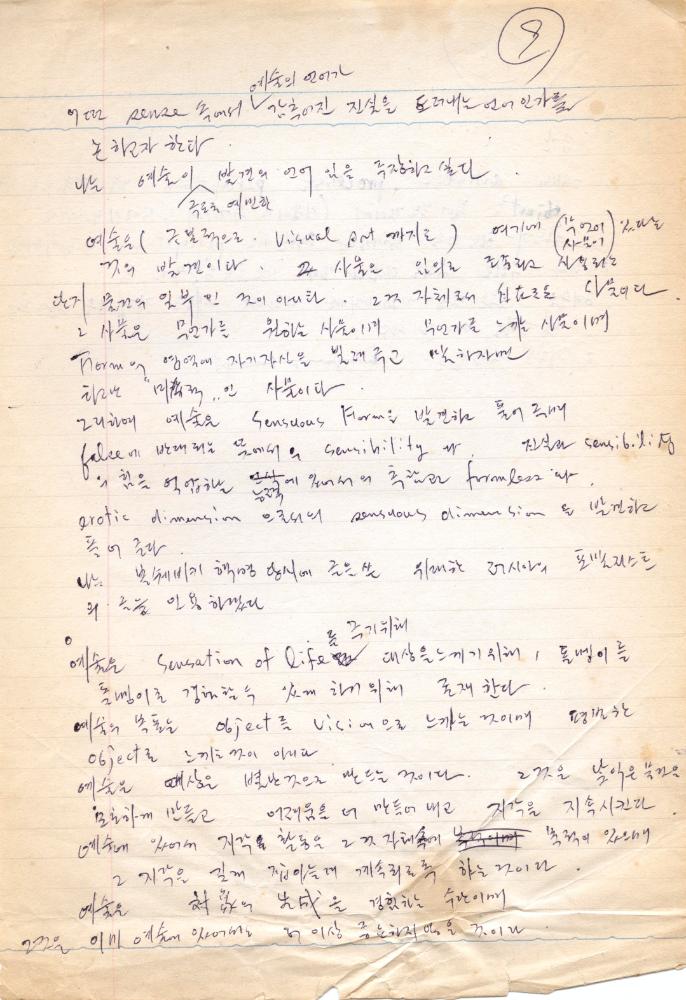 8
예술의 언어가
어떤 sense 속에서 감추어진 진실을 드러내는 언어인가를
논하고자 한다.
나는 예술이 발견의 언어 임을 주장하고 싶다.
극도로 예민한
예술은 ( 근본적으로 visual art 까지도 ) 여기에 ( 사물이 ) 있다는
것의 발견이다. 그 사물은 임의로
단지 물건의 일부인 것이 아니다. 그것 자체로서 사물이다
그 사물은 무언가를 원하는 사물이며 무언가를 느끼는 사물이며
Form의 영역에 자기자신을 빌려주고 말하자면
하나의 "미학적" 인 사물이다.
그리하여 예술은 Sensuous Form을 발견하고 풀어주며
false에 반대되는 뜻에서의 sensibility 와 진실과 sensibility
의 힘을 억압하는 능력에 있어서의 formless 와
erotic dimension 으로서의 sensuous dimension 을 발견하고
풀어 준다.
나는 볼쉐비키 혁명 당시에 글을 쓴 위대한 러시아의 포말리스트
의 글을 인용하겠다
를 주기위해
예술은 Sensation of life 대상을 느끼기 위해, 돌멩이를
돌멩이로 경험할 수 있게 하기 위해 존재한다.
예술의 목표는 object를 vision으로 느끼는 것이며 평범한
object로 느끼는 것이 아니다
예술은 대상을 별난것으로 만드는 것이다. 그것은 낯익은 것을
모호하게 만들고 어려움을 더 만들어 내고 지각을 지속시킨다.
예술에 있어서 지각 활동은 그것 자체에 목적이 있으며
그 지각은 길게 계속되도록 하는 것이다.
예술은 対象의 生成을 경험하는 수단이며
그것은 이미 예술에 있어서는 더 이상 중요하지 않을 것이다.